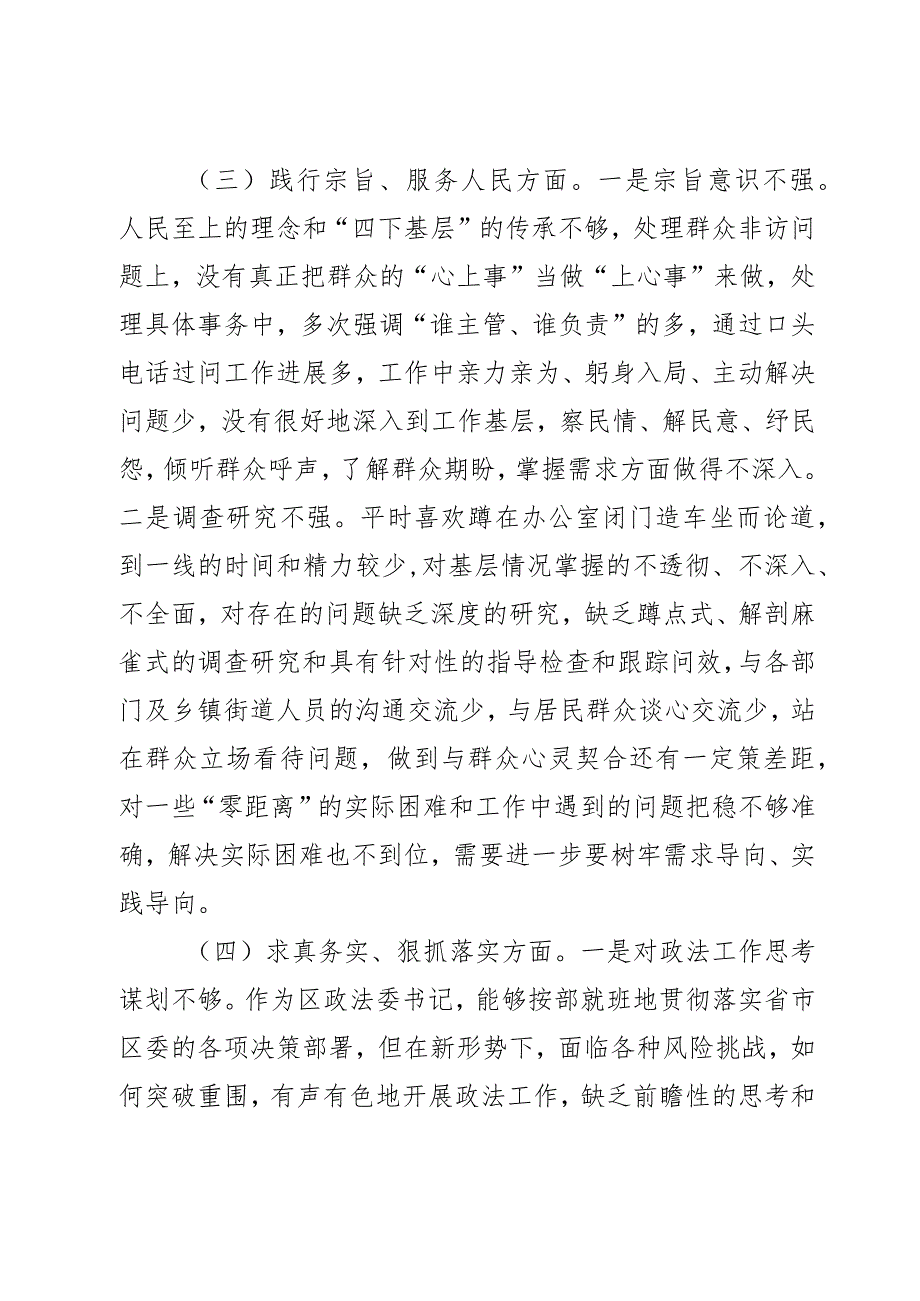 （三）践行宗旨、服务人民方面。一是宗旨意识不强。
人民至上的理念和“四下基层”的传承不够，处理群众非访问
题上，没有真正把群众的“心上事”当做“上心事”来做，处
理具体事务中，多次强调“谁主管、谁负责”的多，通过口头
电话过问工作进展多，工作中亲力亲为、躬身入局、主动解决
问题少，没有很好地深入到工作基层，察民情、解民意、纾民
怨，倾听群众呼声，了解群众期盼，掌握需求方面做得不深入。
二是调查研究不强。平时喜欢蹲在办公室闭门造车坐而论道，
到一线的时间和精力较少,对基层情况掌握的不透彻、不深入、
不全面，对存在的问题缺乏深度的研究，缺乏蹲点式、解剖麻
雀式的调查研究和具有针对性的指导检查和跟踪问效，与各部
门及乡镇街道人员的沟通交流少，与居民群众谈心交流少，站
在群众立场看待问题，做到与群众心灵契合还有一定策差距，
对一些“零距离”的实际困难和工作中遇到的问题把稳不够准
确，解决实际困难也不到位，需要进一步要树牢需求导向、实
践导向。
（四）求真务实、狠抓落实方面。一是对政法工作思考
谋划不够。作为区政法委书记，能够按部就班地贯彻落实省市
区委的各项决策部署，但在新形势下，面临各种风险挑战，如
何突破重围，有声有色地开展政法工作，缺乏前瞻性的思考和